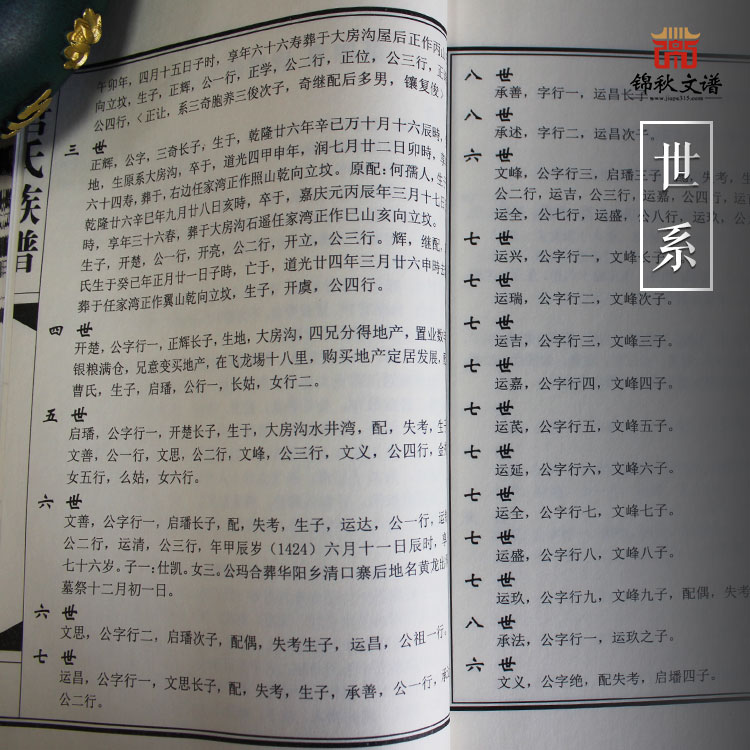 午卯年，四月十五日子时，享年六十六寿葬于大房沟屋后正作丙山
向立坟，生子，正辉，公一行，正学，公二行，正位，公三行，正
公四行，〈正让，系三奇胞养三俊次子，奇继配后多男，镶复俊〉
三 世
正辉，公字，三奇长子，生于，乾隆廿六年辛己万十月十六辰時，
地，生原系大房沟，卒于，道光四甲申年，润七月廿二日卯時，
六十四寿，葬于，右边任家湾正作照山乾向立坟。原配：何孺人，生
乾隆廿六辛己年九月廿八日亥時，卒于，嘉庆元丙辰年三月十七日
時，享年三十六春，葬于大房沟石遥任家湾正作巳山亥向立坟。
生子，开楚，公一行，开亮，公二行，开立，公三行。辉，继配，
氏生于癸己年正月廿一日子時，亡于，道光廿四年三月廿六申時去
葬于任家湾正作翼山乾向立坟，生子，开虞，公四行。
四 世
开楚，公字行一，正辉长子，生地，大房沟，四兄分得地产，置业数
银粮满仓，兄意变买地产，在飞龙場十八里，购买地产定居发展，
曹氏，生子，启璠，公行一，长姑，女行二。
五 世
启璠，公字行一，开楚长子，生于，大房沟水井湾，配，失考，生子
文善，公一行，文思，公二行，文峰，公三行，文义，公四行，金
女五行，么姑，女六行。
六 世
文善，公字行一，启璠长子，配，失考，生子，运达，公一行，运
公二行，运清，公三行，年甲辰岁（1424）六月十一日辰时，享
七十六岁。子一：仕凯。女三。公玛合葬华阳乡清口寨后地名黄龙出
墓祭十二月初一日。
六 世
文思，公字行二，启璠次子，配偶，失考生子，运昌，公祖一行。
七 世
运昌，公字行一，文思长子，配，失考，生子，承善，公一行，承
公二行。
氏族谱
锦秋文谱
www.jiapu315.com
世系
八 世
承善，字行一，运昌长子
承述，字行二，运昌次子。
六 世
文峰，公字行三，启璠三子，配，失考，生
公二行，运吉，公三行，运嘉，公四行，运
运全，公七行，运盛，公八行，运玖，公
七 世
运兴，公字行一，文峰长子
七 世
运瑞，公字行二，文峰次子。
七 世
运吉，公字行三，文峰三子。
七 世
运嘉，公字行四，文峰四子。
七 世
运芪，公字行五，文峰五子。
七 世
运延，公字行六，文峰六子。
七 世
运全，公字行七，文峰七子。
七 世
运盛，公字行八，文峰八子。
七 世
运玖，公字行九，文峰九子，配偶，失考
八 世
承法，公字行一，运玖之子。
六 世
文义，公字绝，配失考，启璠四子。